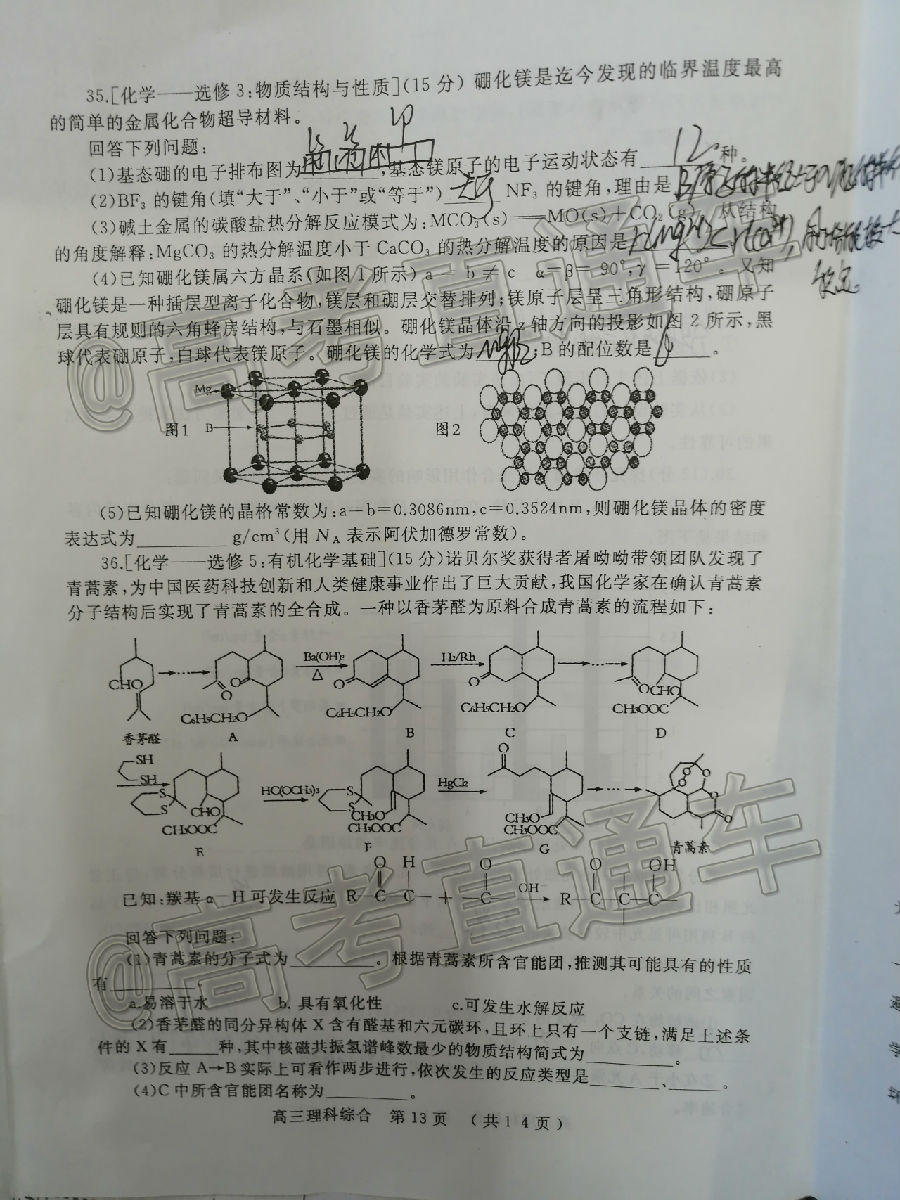 35.[化学——选修3:物质结构与性质](15分) 硼化镁是迄今发现的临界温度最高
的简单的金属化合物超导材料。
回答下列问题:
(1)基态硼的电子排布图为 1s 2s 2p ,基态镁原子的电子运动状态有 12 种。
(2)BF₃的键角(填“大于”、“小于”或“等于”) 大于 NF₃的键角,理由是
(3)碱土金属的碳酸盐热分解反应模式为:MCO₃(s)══MO(s)+CO₂(g),从结构
的角度解释:MgCO₃的热分解温度小于CaCO₃的热分解温度的原因是
(4)已知硼化镁属六方晶系(如图1所示)a=b≠c α=β=90°,γ=120°。又知
硼化镁是一种插层型离子化合物,镁层和硼层交替排列;镁原子层呈三角形结构,硼原子
层具有规则的六角蜂房结构,与石墨相似。硼化镁晶体沿z轴方向的投影如图2所示,黑
球代表硼原子,白球代表镁原子。硼化镁的化学式为 MgB₂ ;B的配位数是 6 。
Mg
图1 B 图2
(5)已知硼化镁的晶格常数为:a=b=0.3086nm,c=0.3524nm,则硼化镁晶体的密度
表达式为________g/cm³(用N_A表示阿伏加德罗常数)。
36.[化学——选修5:有机化学基础](15分)诺贝尔奖获得者屠呦呦带领团队发现了
青蒿素,为中国医药科技创新和人类健康事业作出了巨大贡献,我国化学家在确认青蒿素
分子结构后实现了青蒿素的全合成。一种以香茅醛为原料合成青蒿素的流程如下:
CHO 香茅醛
O O C₆H₅CH₂O A
Ba(OH)₂ △
O C₆H₅CH₂O B
H₂/Rh
O C₆H₅CH₂O C
O CHO CH₃OOC D
SH SH
S S CHO CH₃OOC E
HC(OCH₃)₃
S S CH₃O CH₃OOC F
HgCl₂
O CH₃O CH₃OOC G
青蒿素
已知:羰基α-H可发生反应 R—C—C— + —C— OH⁻ → R—C—C—C—
O H O O OH
回答下列问题:
(1)青蒿素的分子式为________。根据青蒿素所含官能团,推测其可能具有的性质
有________。
a.易溶于水 b.具有氧化性 c.可发生水解反应
(2)香茅醛的同分异构体X含有醛基和六元碳环,且环上只有一个支链,满足上述条
件的X有____种,其中核磁共振氢谱峰数最少的物质结构简式为________。
(3)反应A→B实际上可看作两步进行,依次发生的反应类型是____、____。
(4)C中所含官能团名称为________。
高三理科综合 第13页 (共14页)
@高考直通车
@高考直通车